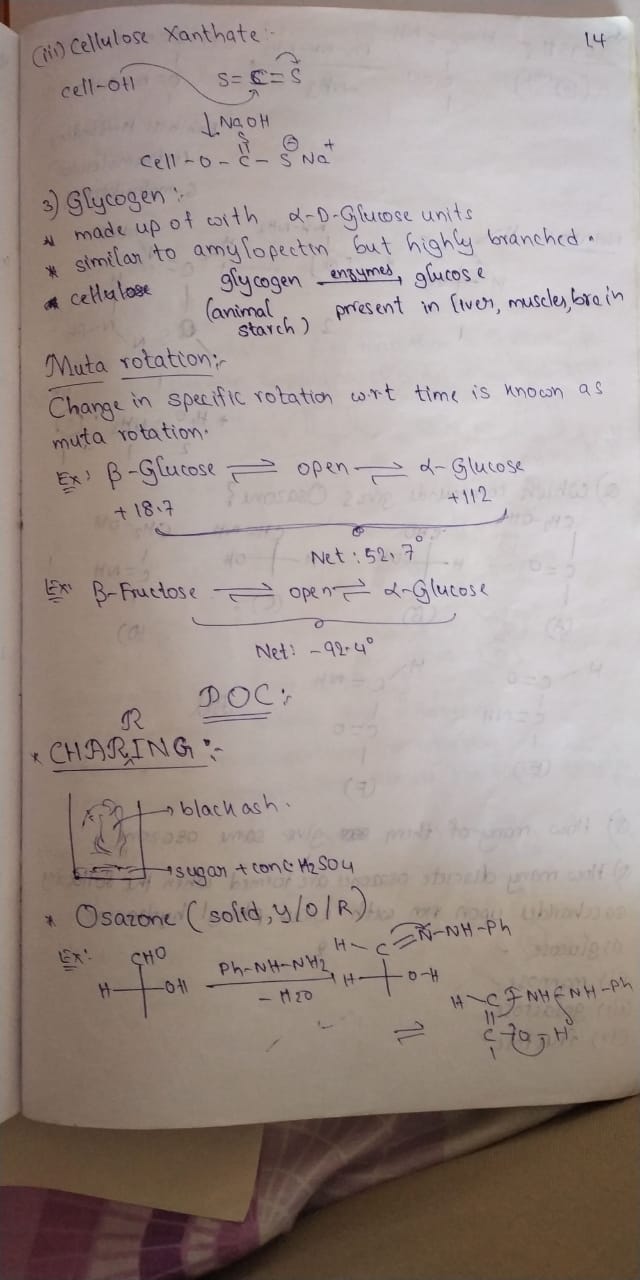 14
(iii) Cellulose Xanthate :-
cell-OH S=C=S
↓ NaOH
S
Cell-O-C-S⊖ Na+
3) Glycogen :-
* made up of with α-D-Glucose units
* similar to amylopectin but highly branched.
* cellulose glycogen enzymes glucose
(animal starch) present in liver, muscles, brain
Muta rotation:-
Change in specific rotation w.r.t time is known as
muta rotation.
Ex: β-Glucose ⇌ open ⇌ α-Glucose
+18.7 +112
Net: 52.7°
Ex: β-Fructose ⇌ open ⇌ α-Glucose
Net: -92.4°
DOC:-
R
* CHARING :-
→ black ash.
→ sugar + conc H2SO4
* Osazone (solid, Y/O/R)
Ex: CHO
H OH
Ph-NH-NH2
- H2O
H-C=N-NH-Ph
H O-H
⇌
H-C NH NH-Ph
C O H